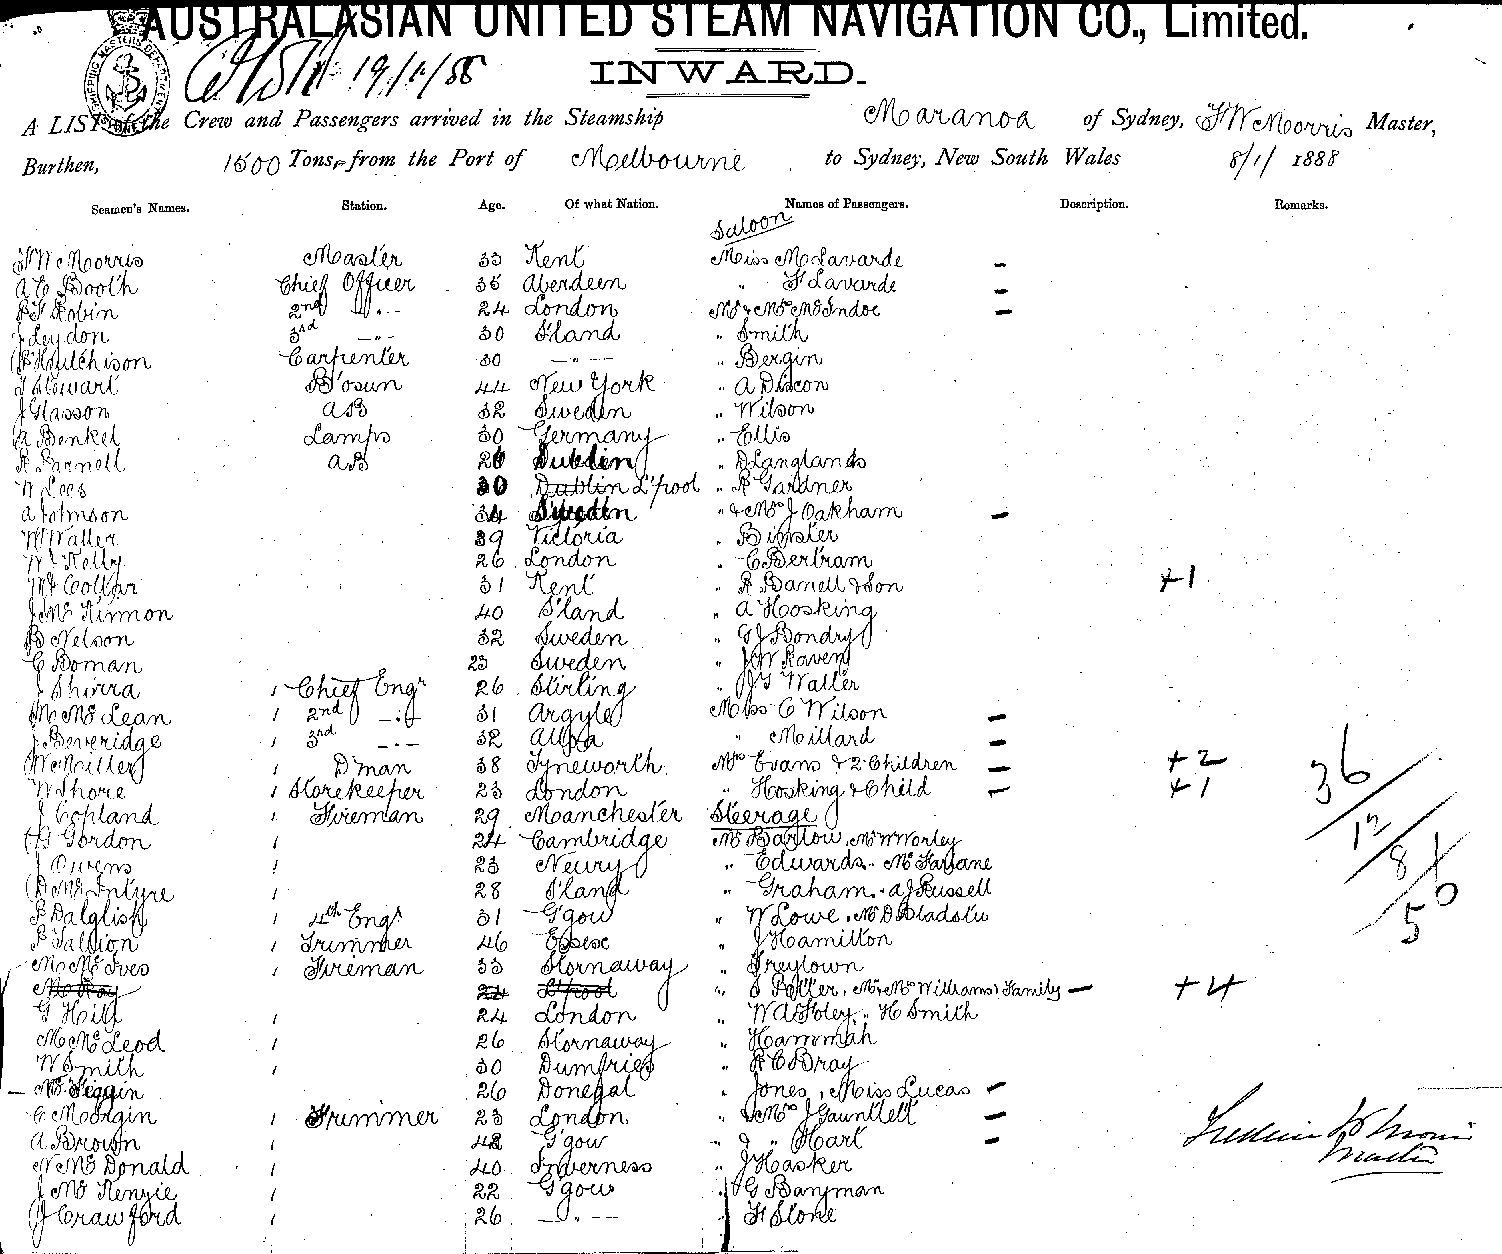 AUSTRALASIAN UNITED STEAM NAVIGATION CO., Limited.
19/1/88
INWARD.
A LIST of the Crew and Passengers arrived in the Steamship Maranoa of Sydney, F W Morris Master,
Burthen, 1500 Tons, from the Port of Melbourne to Sydney, New South Wales 8/1/ 1888
Seamen's Names. Station. Age. Of what Nation. Names of Passengers. Description. Remarks.
Saloon
F W Morris Master 33 Kent Miss M Lavarde –
A C Booth Chief Officer 35 Aberdeen " F Lavarde –
P F Robin 2nd " 24 London Mr & Mrs McIndoe –
J Leydon 3rd –"– 30 S'land " Smith
Hutchison Carpenter 30 –"– " Bergin
T Stewart B'osun 44 New York " A Dixon
J Glasson AB 32 Sweden " Wilson
A Benkel Lamps 30 Germany " Ellis
R Parnell AB Dublin " D Langlands
W Lees 30 L'pool " R Gardner
A Johnson 34 Sweden " & Mrs J Oakham –
W Waller 39 Victoria "
W Kelly 26 London " C Bertram
Collar 31 Kent " R Barrell & Son +1
J McKinnon 40 S'land " A Hosking
B Nelson 32 Sweden " G J Bondry
C Boman 23 Sweden " J W Raven
J Shirra Chief Engr 26 Stirling " J G Waller
M McLean 2nd –"– 31 Argyle Miss C Wilson –
J Beveridge 3rd –"– 32 Alloa " Millard –
W C Miller D'man 38 Tyneworth Mrs Evans & 2 Children – +2
W Shore Storekeeper 23 London " Hosking & Child – +1
J Copland Fireman 29 Manchester Steerage
Gordon 24 Cambridge Mr Barlow, Mr W Worley
J Owens 23 Newry " Edwards " McFarlane
D McIntyre 28 S'land " Graham " A J Russell
P Dalglish 4th Engr 31 G'gow " W Lowe
Trimmer 46 Essex " J Hamilton
M McIves Fireman 33 Stornaway " Freytown
24 L'pool " Potter, Mr & Mrs Williams & Family – +4
G Hill 24 London " W A Foley " H Smith
M McLeod 26 Stornaway " Hammah
W Smith 30 Dumfries " R C Bray
26 Donegal " Jones, Miss Lucas –
C Morgin Trimmer 23 London " & Mrs J Gauntlett –
A Brown 42 G'gow " & " Hart –
N McDonald 40 Inverness " J Hasker
J McKenzie 22 G'gow " G Banyman
J Crawford 26 –"– F Stone
36
12
8
50
Master